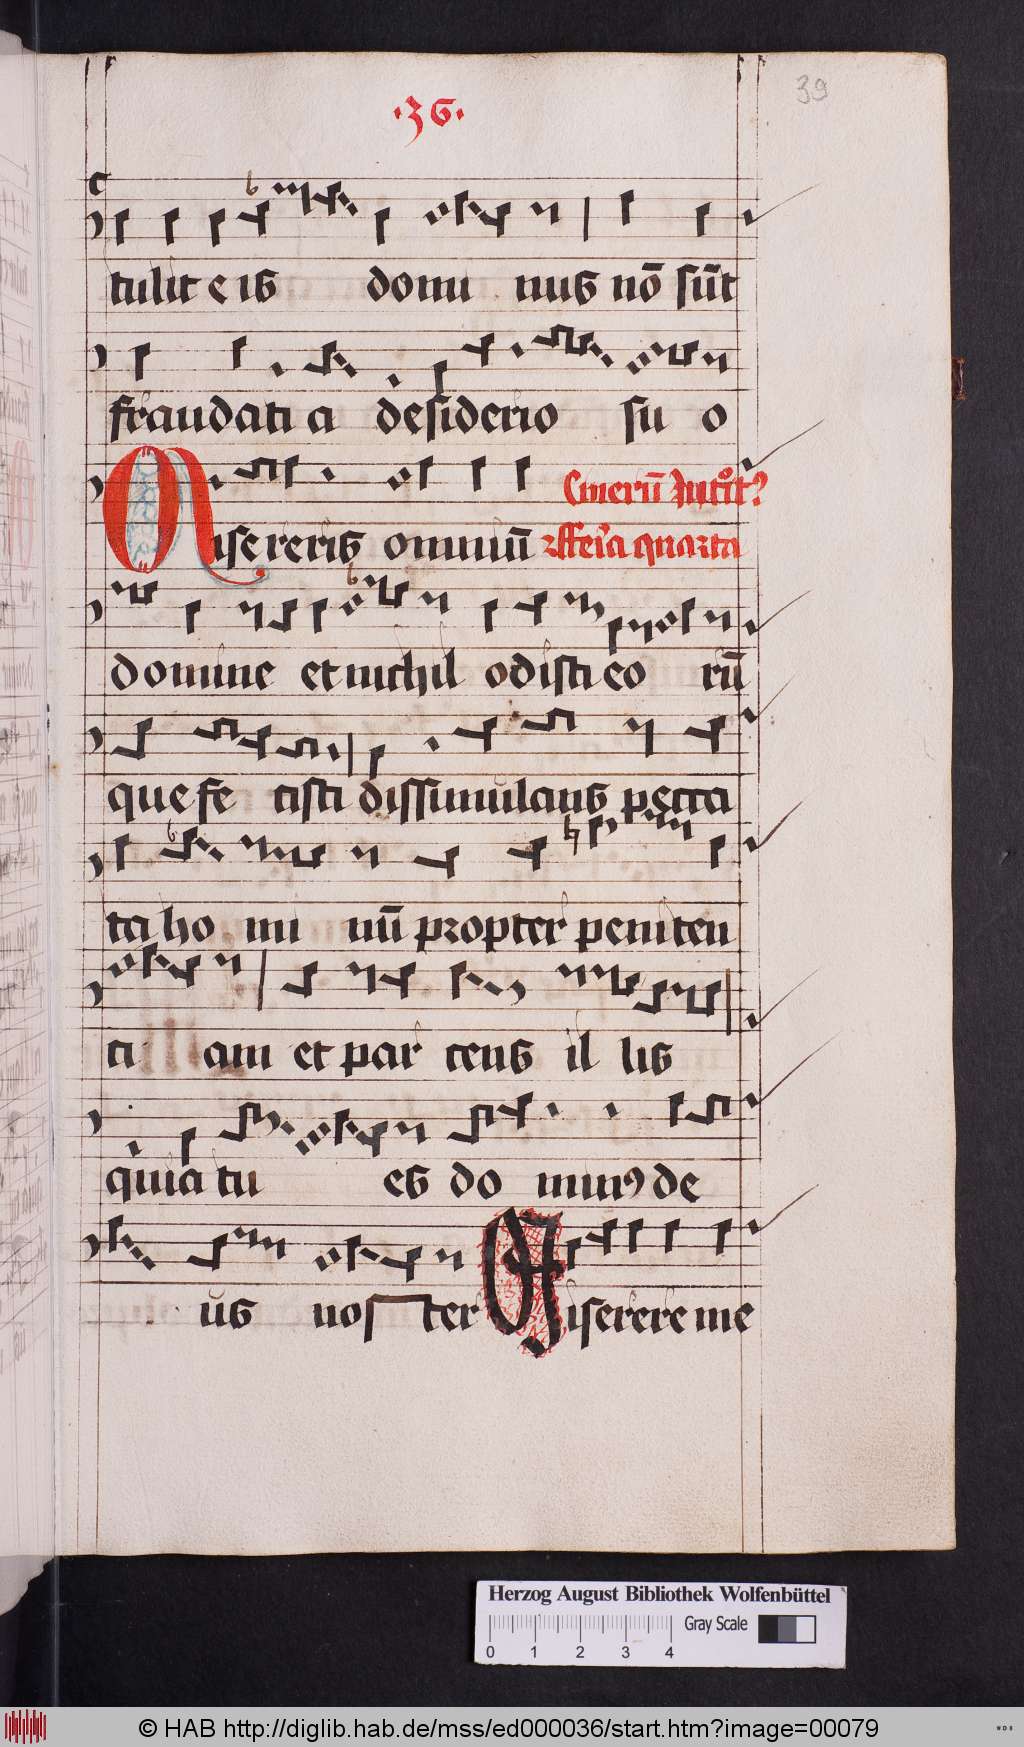 ·36·
39
tulit eis domi nus nō sūt
fraudati a desiderio su o
Cinerū Introit9
Misereris omniū
ff feria quarta
domine et nichil odisti eo rū
que fe cisti dissimulans pecca
ta ho mi nū propter peniten
ti am et par cens il lis
quia tu es do min9 de
us nos ter Miserere me
Herzog August Bibliothek Wolfenbüttel
Gray Scale
0 1 2 3 4
© HAB http://diglib.hab.de/mss/ed000036/start.htm?image=00079